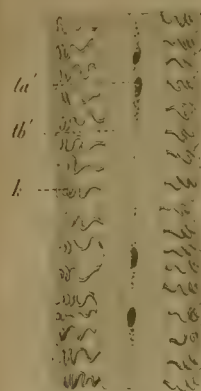 ta'
tb'
k